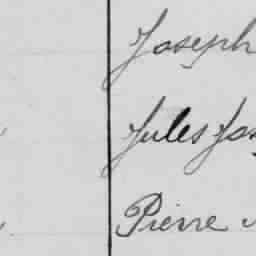 Joseph
Jules Jos
Pierre